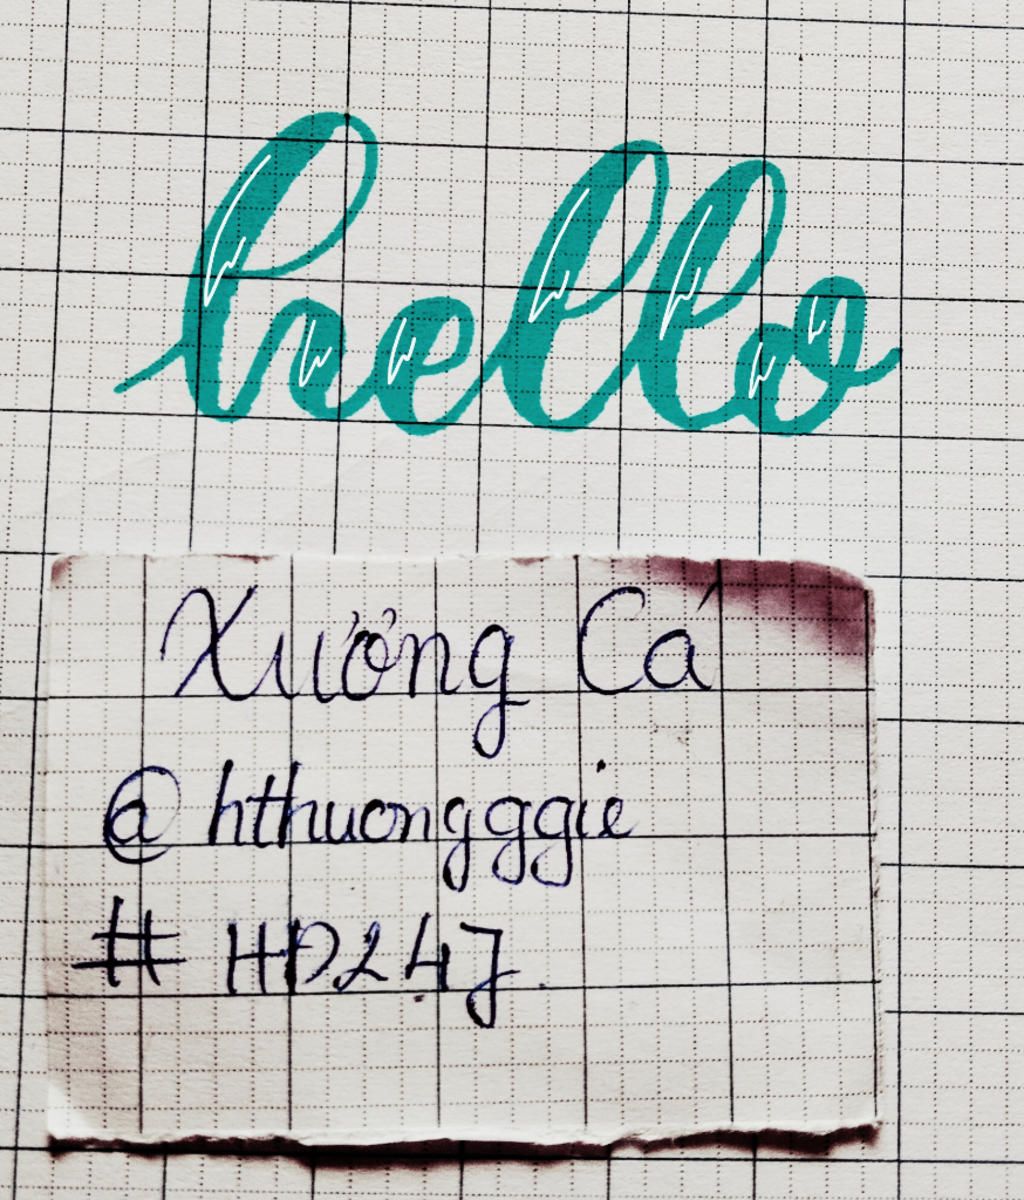 hello
Xương Cá
@hthuongggie
# HD247